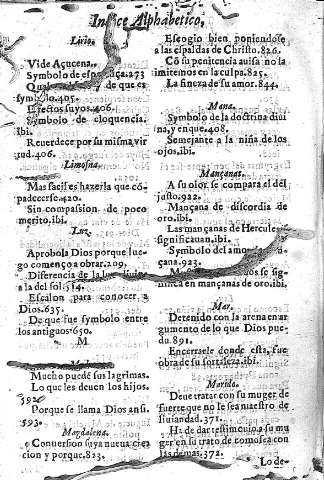 Indice Alphabetico,
Lirio.
Vide Açucena.
Symbolo de 273
y de que es
405.
Efectos suyos.406.
Symbolo de eloquencia.
ibi.
Reuerdece por su misma vir
tud.406.
Limosna.
Mas facil es hazerla que cõ-
padecerse.420.
Sin compassion de poco
merito.ibi.
Luz.
Aprobola Dios porque lue-
go començo a obrar.209.
Diferencia de la
a la del sol.514.
Escalon para conocer a
Dios.635.
De que fue symbolo entre
los antiguos.650.
M
Mucho puedē sus lagrimas.
Lo que les deuen los hijos.
592.
Porque se llama Dios ansi.
593.
Magdalena.
Conuersion suya nueua crea
cion y porque.823.
Escogio bien poniendose
a las espaldas de Christo.826.
Cõ su penitencia auisa no la
imitemos en la culpa.825.
La fineza de su amor.844.
Mana.
Symbolo de la doctrina diui
na, y en que.408.
Semejante a la niña de los
ojos.ibi.
Mançanas.
A su olor se compara el del
justo.922.
Mançana de discordia de
oro.ibi.
Las mançanas de Hercules
significauan.ibi.
Symbolo del amor
923.
se sig-
nifica en mançanas de oro.ibi.
Mar.
Detenido con la arena en ar
gumento de lo que Dios pue-
du.891.
Encerrarle donde està, fue
obra de su fortaleza.ibi.
Marido.
Deue tratar con su muger de
suerte que no le sea maestro de
liuiandad.371.
Ha de dar testimonio a su mu
ger en su trato de como sea con
las demas.372.
Lo de-